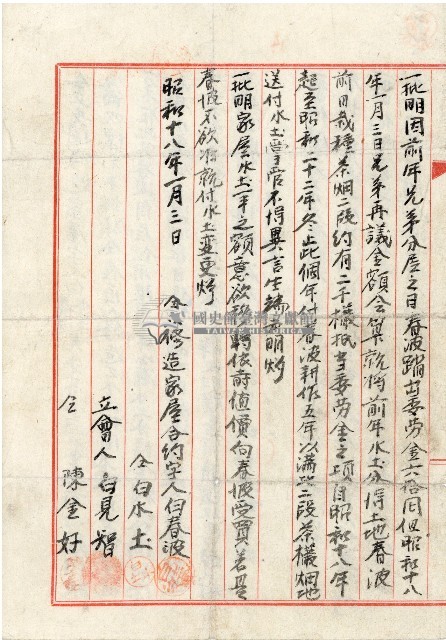 一批明因前年兄弟分居之日春波踏出委劳金六拾円但昭和十八
年一月三日兄弟再議金額会算就将前年水土分得土地春波
前日栽種茶畑二段約有二千欉抵当委劳金之項自昭和十八年
起至昭和二十二年冬止此個年付春波耕作五年以満此二段茶欉畑地
送付水土掌管不得異言生端批明炤
一批明家屋水土一半之額意欲後轉依時值價向春波受買若是
春波不欲将就付水土变更炤
昭和十八年一月三日
仝修造家屋合約字人白春波
仝白水土
立會人白見智
仝陳金好
國史館臺灣文獻館
TAIWAN HISTORICA